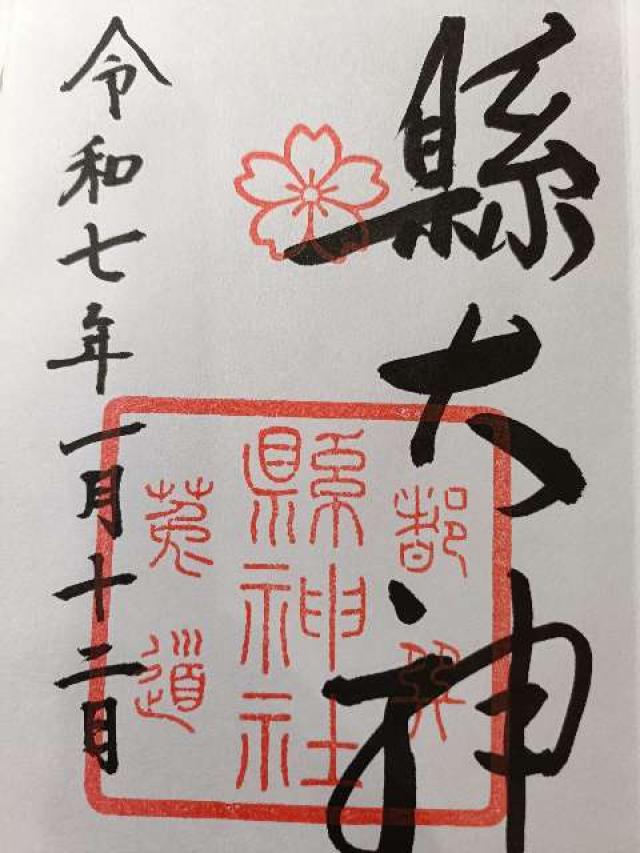 縣大神
都巽
縣神社
菟道
令和七年一月十二日